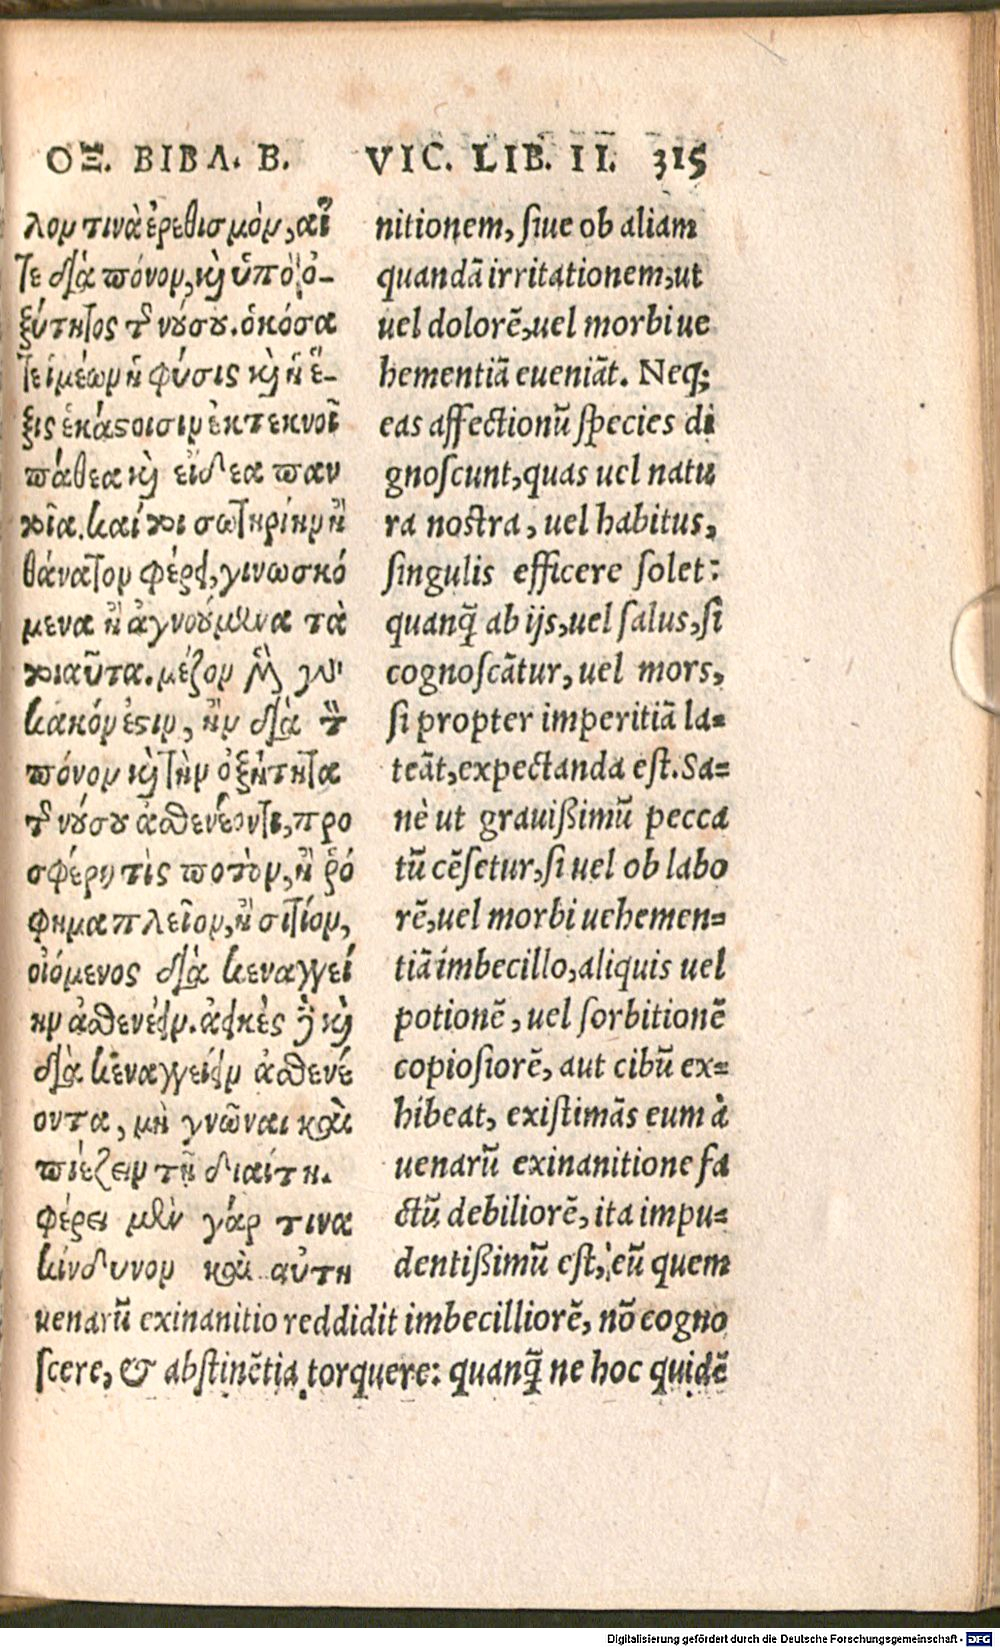 ΟΞ. ΒΙΒΛ. Β.
λον τινὰ ἐρεθισμὸν, αἵ
τε διὰ πόνον, κὴ ὑπὸ ὀ-
ξύτητος τ̃ νούσου. ὁκόσα
τε ἡμέων ἡ φύσις κὴ ἡ ἕ-
ξις ἑκάστοισιν ἐκτεκνοῖ
πάθεα κὴ εἴδεα παν
τοῖα. καί τοι σωτηρίην ἢ
θάνατον φέρει, γινωσκό
μενα ἢ ἀγνοούμενα τὰ
τοιαῦτα. μέζον μὴν γὰρ
κακόν ἐστιν, ἢν διὰ τ̀
πόνον κὴ τὴν ὀξύτητα
τ̃ νούσου ἀσθενέοντι, προ
σφέρῃ τὶς ποτὸν, ἢ ῥό
φημα πλεῖον, ἢ σιτίον,
οἰόμενος διὰ κεναγγεί
ην ἀσθενέειν. ἀεικὲς δὲ κὴ
διὰ κεναγγείην ἀσθενέ
οντα, μὴ γνῶναι καὶ
πιέζειν τῇ διαίτῃ.
φέρει μὲν γάρ τινα
κίνδυνον καὶ αὕτη
VIC. LIB. II. 315
nitionem, siue ob aliam
quandã irritationem, ut
uel dolorẽ, uel morbi ue
hementiã eueniãt. Neq;
eas affectionũ species di
gnoscunt, quas uel natu
ra nostra, uel habitus,
singulis efficere solet:
quanq̃ ab ijs, uel salus, si
cognoscãtur, uel mors,
si propter imperitiã la=
teãt, expectanda est. Sa=
nè ut grauißimũ pecca
tũ cẽsetur, si uel ob labo
rẽ, uel morbi uehemen=
tiã imbecillo, aliquis uel
potionẽ, uel sorbitionẽ
copiosiorẽ, aut cibũ ex=
hibeat, existimãs eum à
uenarũ exinanitione fa
ctũ debiliorẽ, ita impu=
dentißimũ est, eũ quem
uenarũ exinanitio reddidit imbecilliorẽ, nõ cogno
scere, & abstinẽtia torquere: quanq̃ ne hoc quidẽ
Digitalisierung gefördert durch die Deutsche Forschungsgemeinschaft - DFG